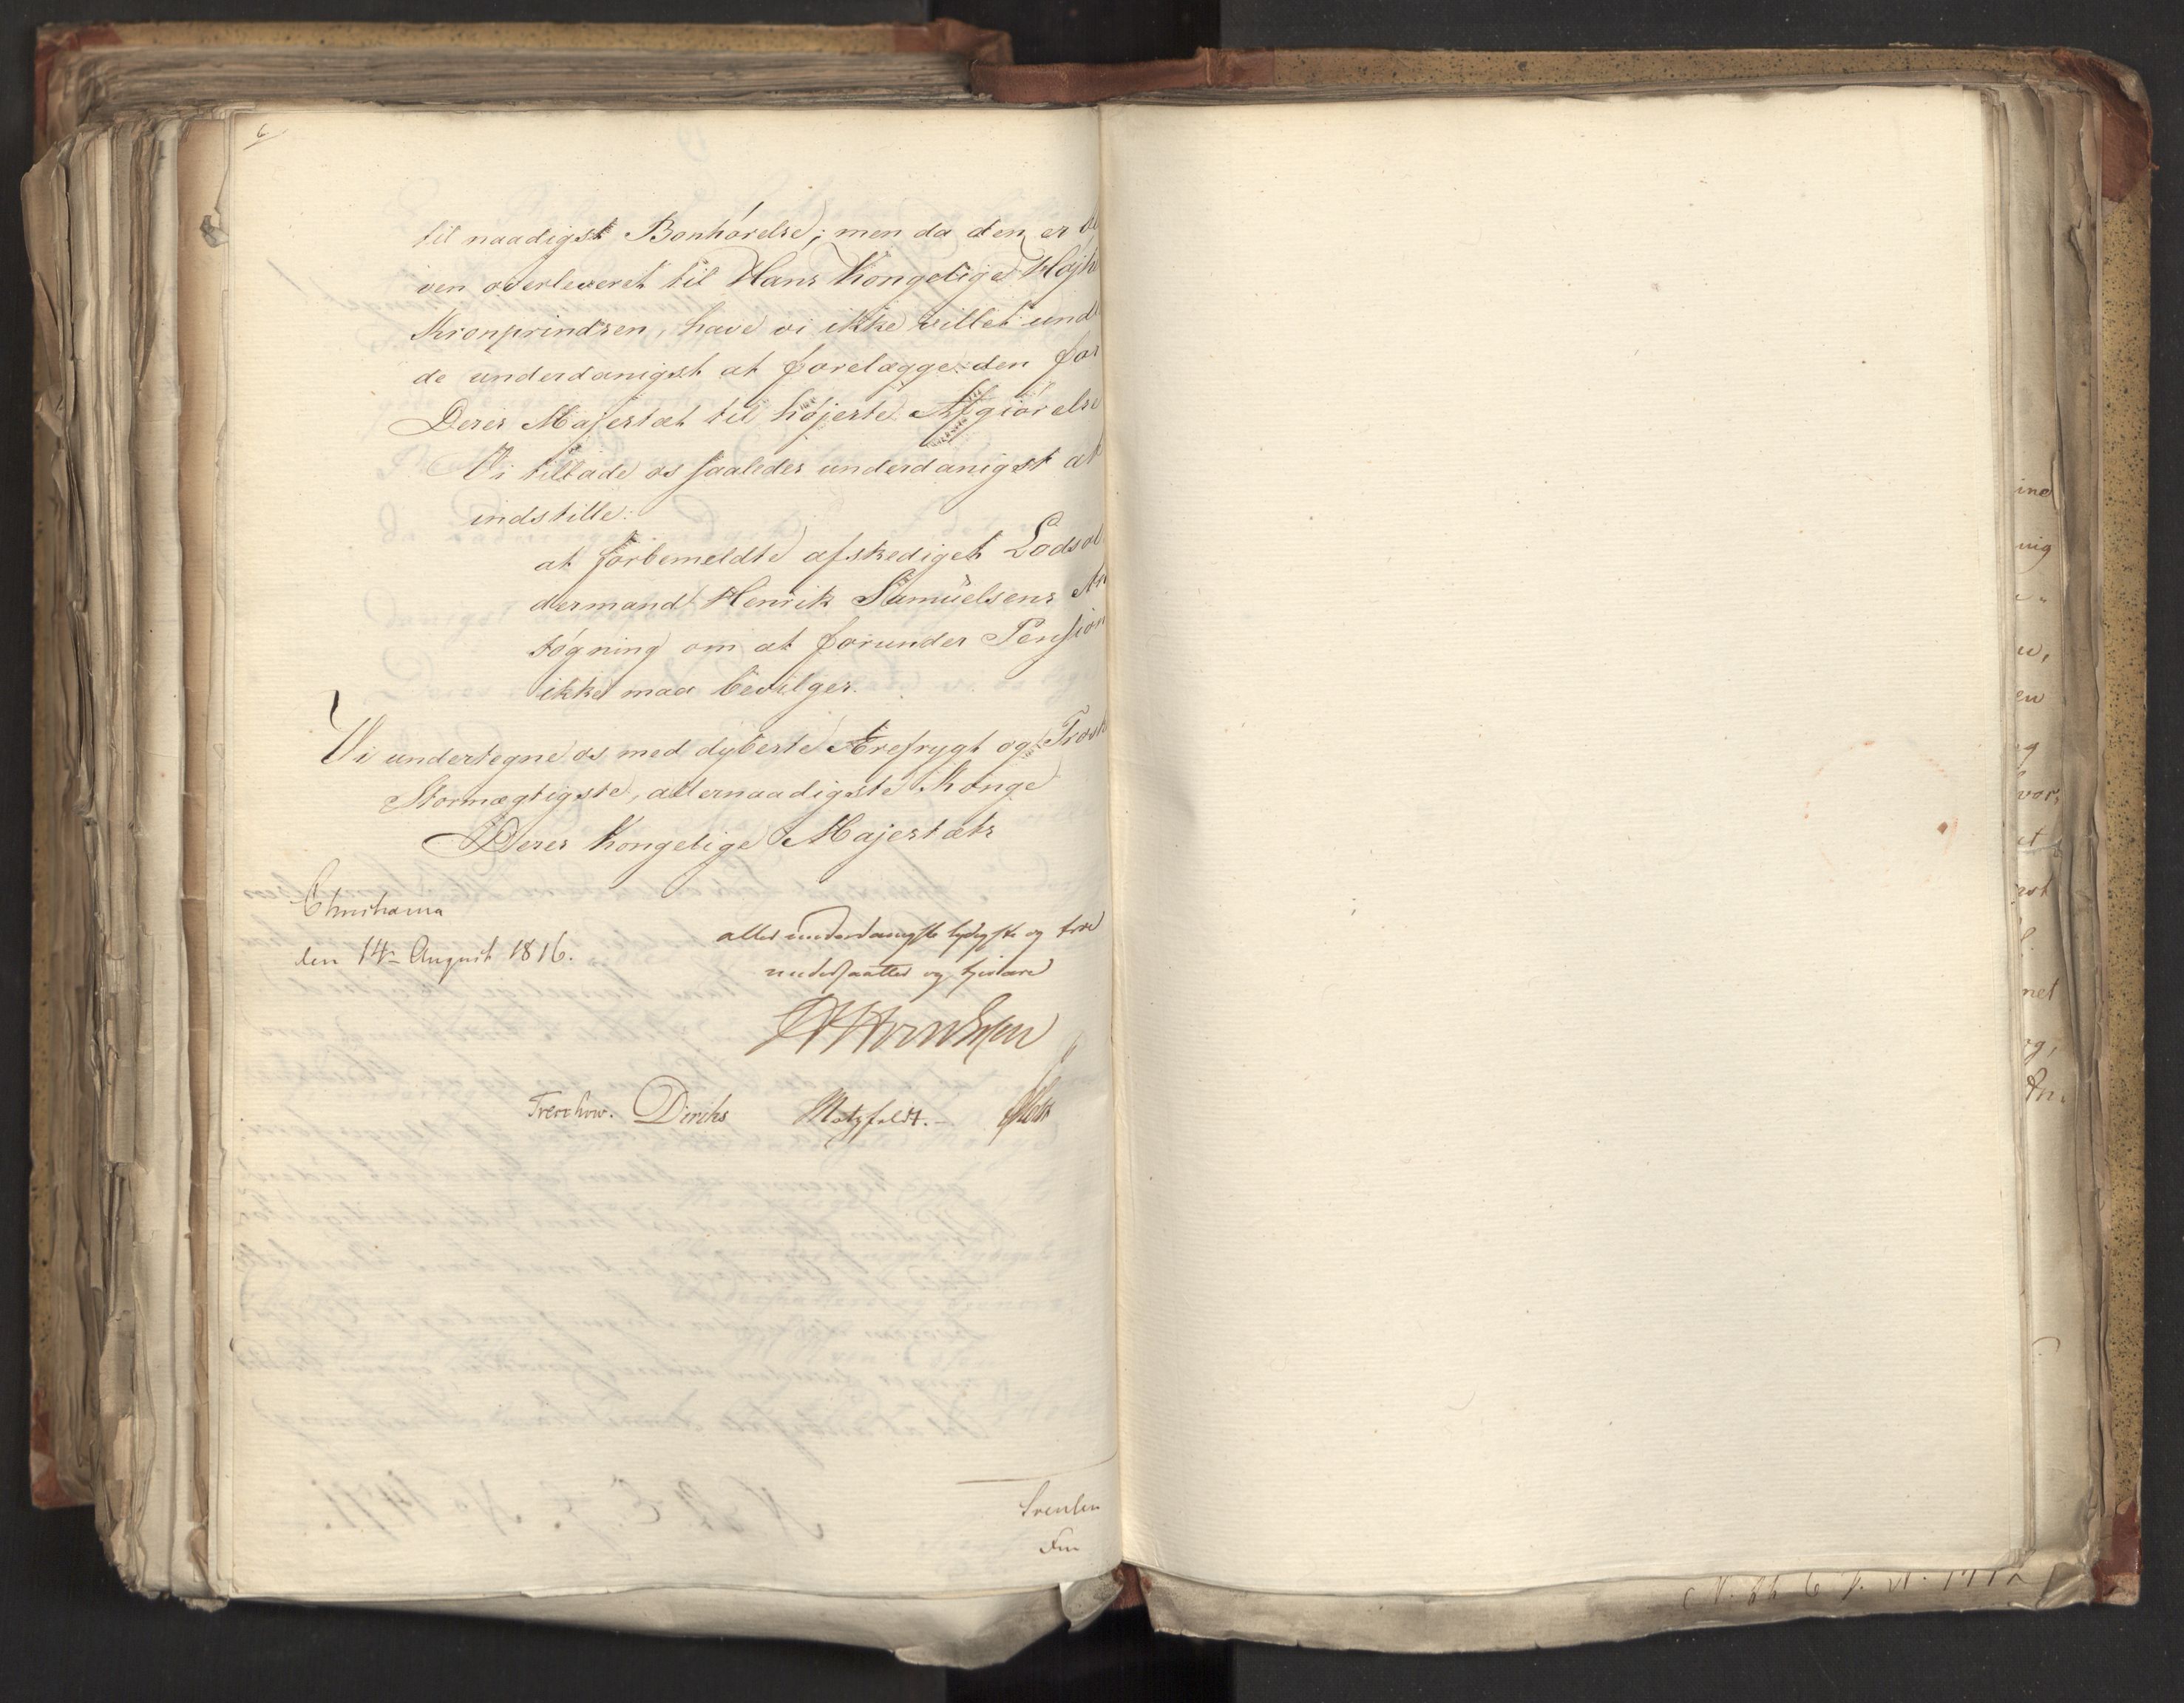 6
til naadigst Bønhørelse; men da den er bl
ven overleveret til Hans Kongelige Højh
Kronprindsen, have vi ikke villet und
de underdanigst at forelægge den for
Deres Majestæt til højeste Afgiørelse
Vi tillade os saaledes underdanigst at
indstille:
at forbemeldte afskediget Lodsol
dermand Henrik Samuelsens An
søgning om at forundes Pension
ikke maa bevilges.
Vi undertegne os med dybeste Ærefrygt og Trosk
Stormægtigste, allernaadigste Konge
Deres Kongelige Majestæts
Christiania
den 14de August 1816.
allerunderdanigste lydigste og troe
undersaatter og tjenere
Treschow. Diriks Motzfeldt.